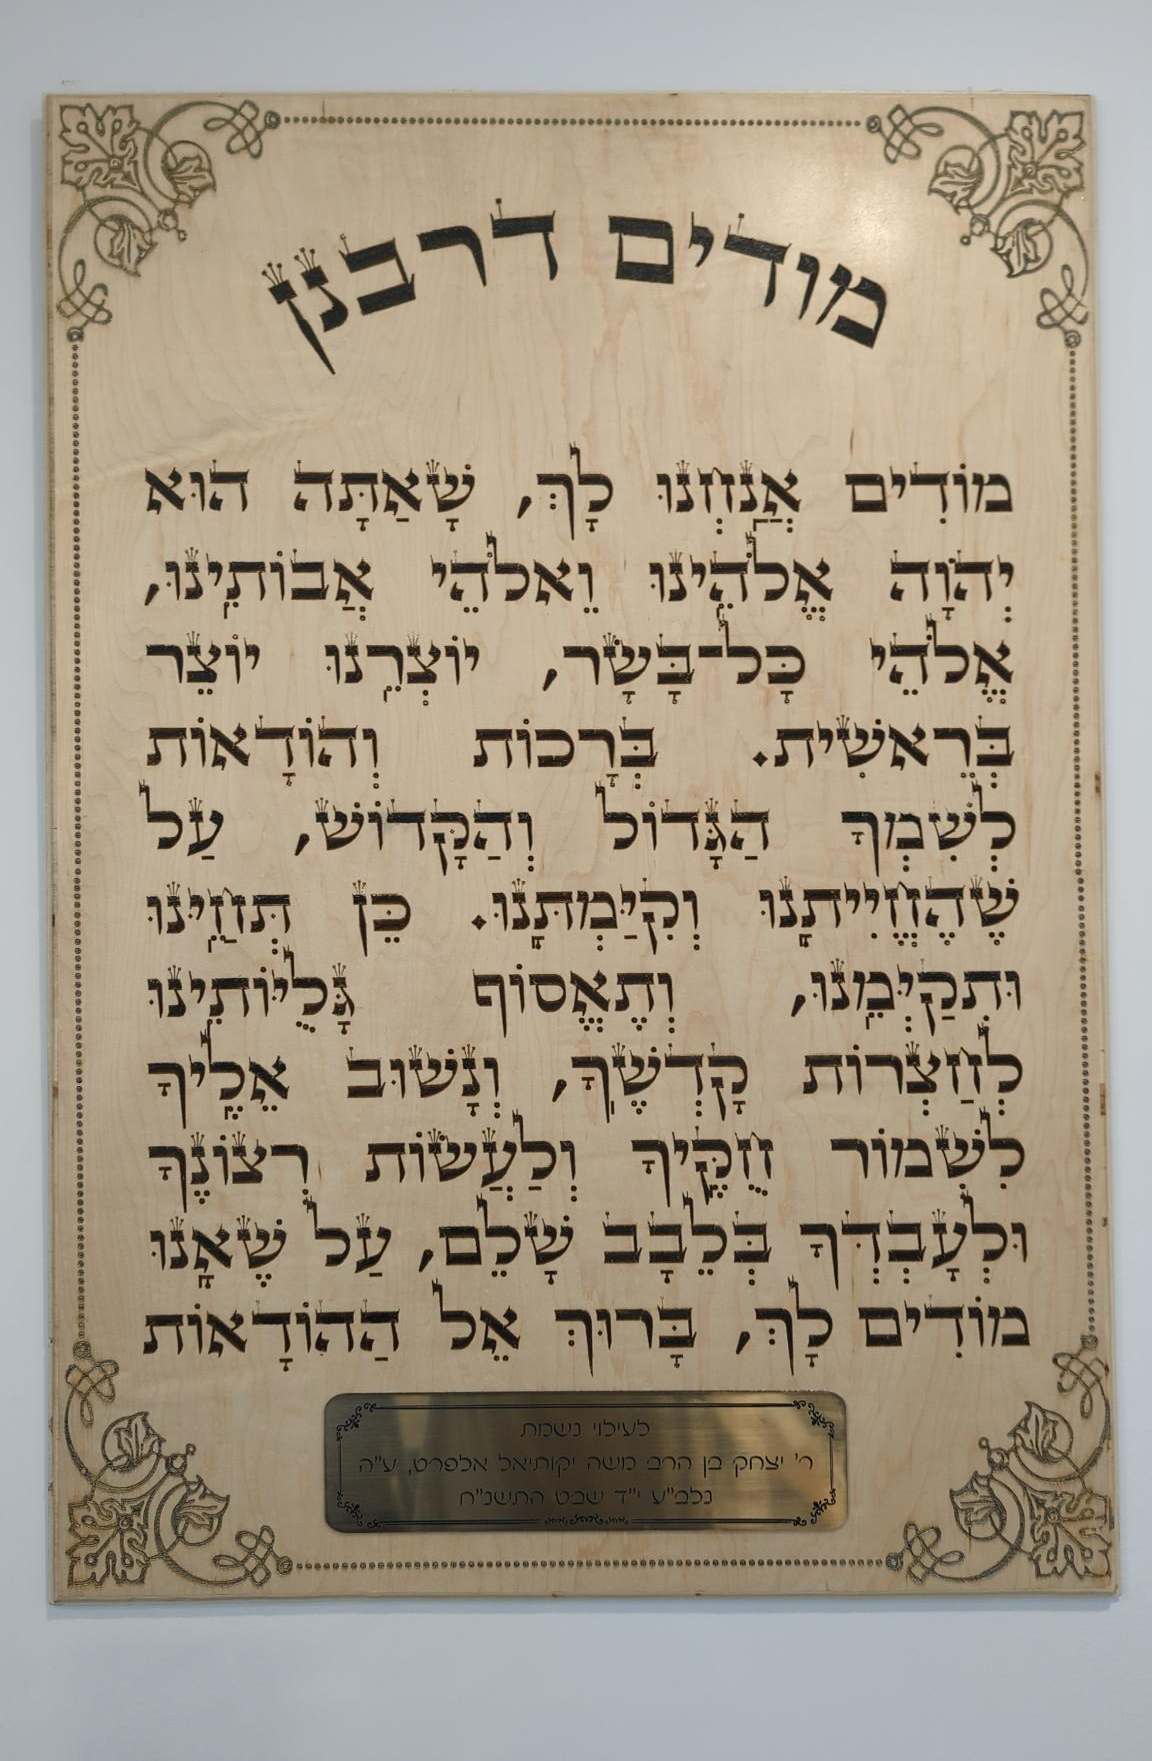 מודים דרבנן
מוֹדִים אֲנַחְנוּ לָךְ, שָׁאַתָּה הוּא
יְהוָֹה אֱלֹהֵינוּ וֵאלֹהֵי אֲבוֹתֵינוּ,
אֱלֹהֵי כָּל־בָּשָׂר, יוֹצְרֵנוּ יוֹצֵר
בְּרֵאשִׁית. בְּרָכוֹת וְהוֹדָאוֹת
לְשִׁמְךָ הַגָּדוֹל וְהַקָּדוֹשׁ, עַל
שֶׁהֶחֱיִיתָנוּ וְקִיַּמְתָּנוּ. כֵּן תְּחַיֵּנוּ
וּתְקַיְּמֵנוּ, וְתֶאֱסוֹף גָּלֻיּוֹתֵינוּ
לְחַצְרוֹת קָדְשֶׁךָ, וְנָשׁוּב אֵלֶיךָ
לִשְׁמוֹר חֻקֶּיךָ וְלַעֲשׂוֹת רְצוֹנֶךָ
וּלְעָבְדְּךָ בְּלֵבָב שָׁלֵם, עַל שֶׁאָנוּ
מוֹדִים לָךְ, בָּרוּךְ אֵל הַהוֹדָאוֹת
לעילוי נשמת
ר' יצחק בן הרב משה יקותיאל אלפרט, ע"ה
נלב"ע י"ד שבט התשנ"ח